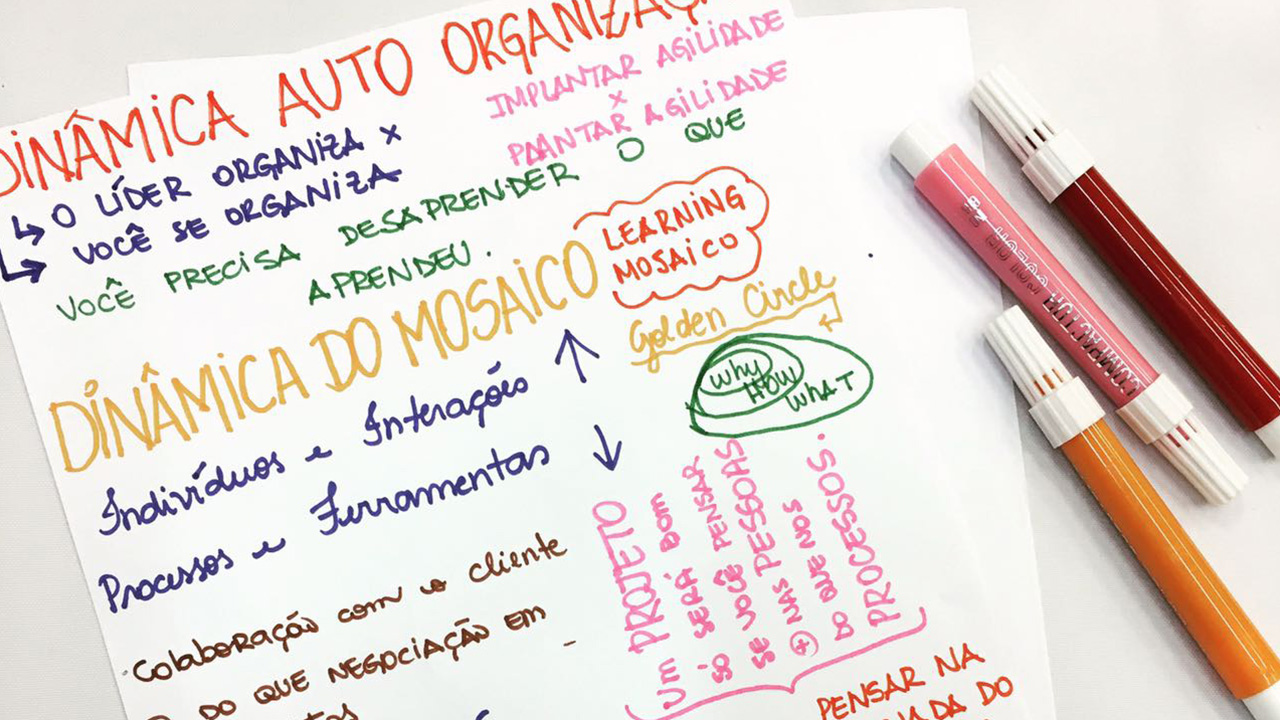 DINÂMICA AUTO ORGANIZAÇ
↳ O LÍDER ORGANIZA X
↳ VOCÊ SE ORGANIZA
IMPLANTAR AGILIDADE
X
PLANTAR AGILIDADE
VOCÊ PRECISA DESAPRENDER O QUE
APRENDEU.
LEARNING
MOSAICO
DINÂMICA DO MOSAICO
Golden Circle
Why
HOW
WHAT
Indivíduos e Interações ↑
Processos e Ferramentas ↓
Um PROJETO
SÓ SERÁ BOM
SE VOCÊ PENSAR
+ NAS PESSOAS
DO QUE NOS
PROCESSOS.
Colaboração com o cliente
DO QUE NEGOCIAÇÃO EM
PENSAR NA
DO
COMPACTOR